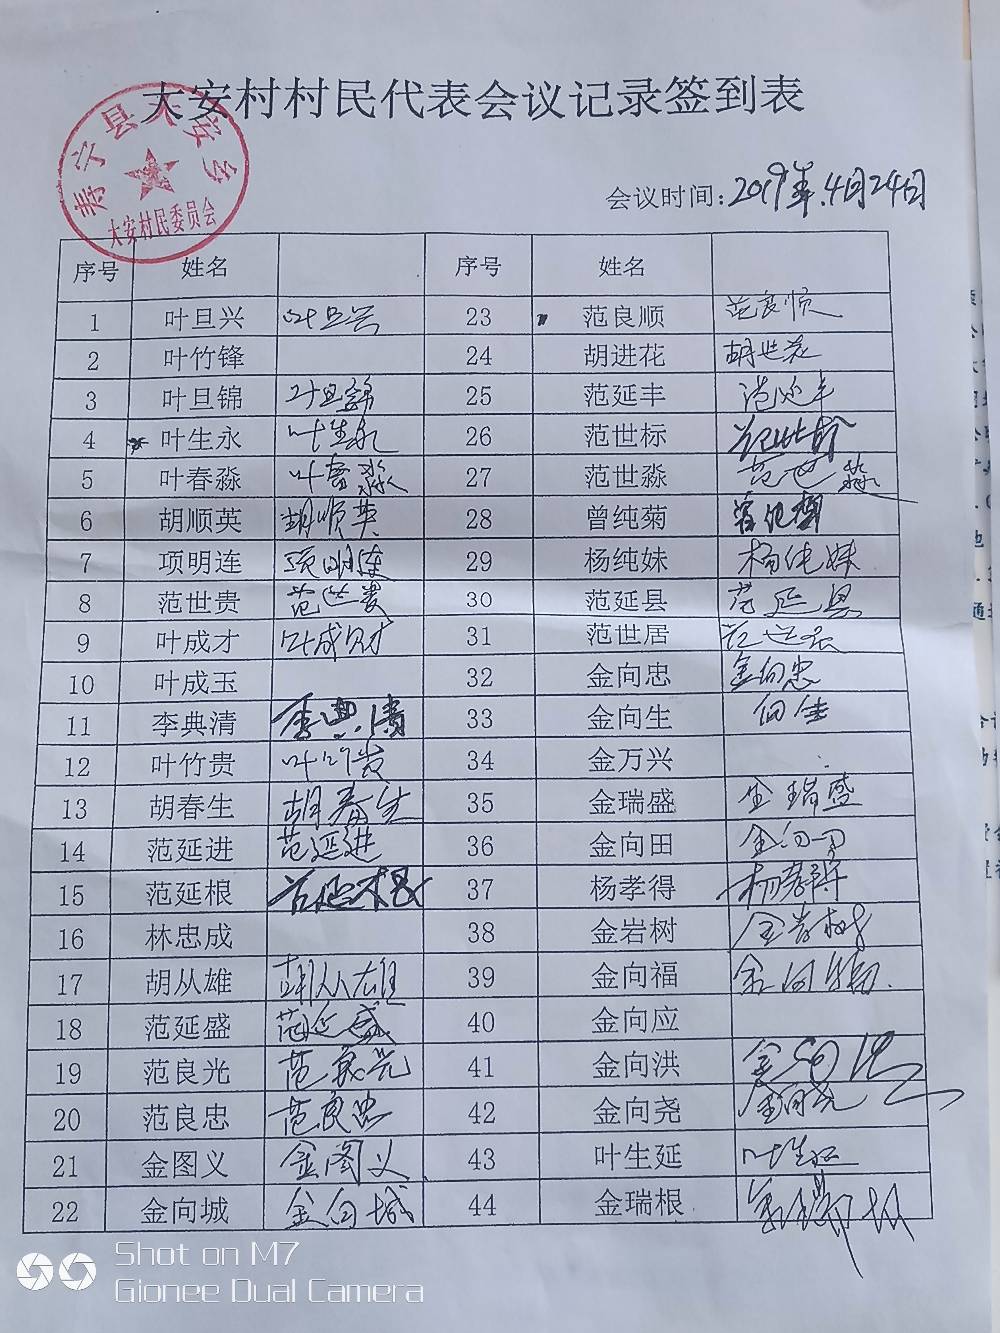 大安村村民代表会议记录签到表
寿宁县大安乡
大安村民委员会
会议时间:2019年.4月24日
序号 姓名 序号 姓名
1 叶旦兴 叶旦兴 23 范良顺 范良顺
2 叶竹锋 24 胡进花 胡世花
3 叶旦锦 叶旦錦 25 范延丰 范延丰
4 叶生永 叶生永 26 范世标 范世标
5 叶春淼 叶春淼 27 范世淼 范世淼
6 胡顺英 胡顺英 28 曾纯菊 曾纯菊
7 项明连 项明连 29 杨纯妹 杨纯妹
8 范世贵 范世贵 30 范延县 范延县
9 叶成才 叶成财 31 范世居 范世居
10 叶成玉 32 金向忠 金向忠
11 李典清 李典清 33 金向生 向生
12 叶竹贵 叶竹贵 34 金万兴
13 胡春生 胡春生 35 金瑞盛 金瑞盛
14 范延进 范延进 36 金向田 金向田
15 范延根 范延根 37 杨孝得 杨孝得
16 林忠成 38 金岩树 金岩树
17 胡从雄 胡从雄 39 金向福 金向福
18 范延盛 范延盛 40 金向应
19 范良光 范良光 41 金向洪 金向洪
20 范良忠 范良忠 42 金向尧 金向尧
21 金图义 金图义 43 叶生延 叶生延
22 金向城 金向城 44 金瑞根
Shot on M7
Gionee Dual Camera